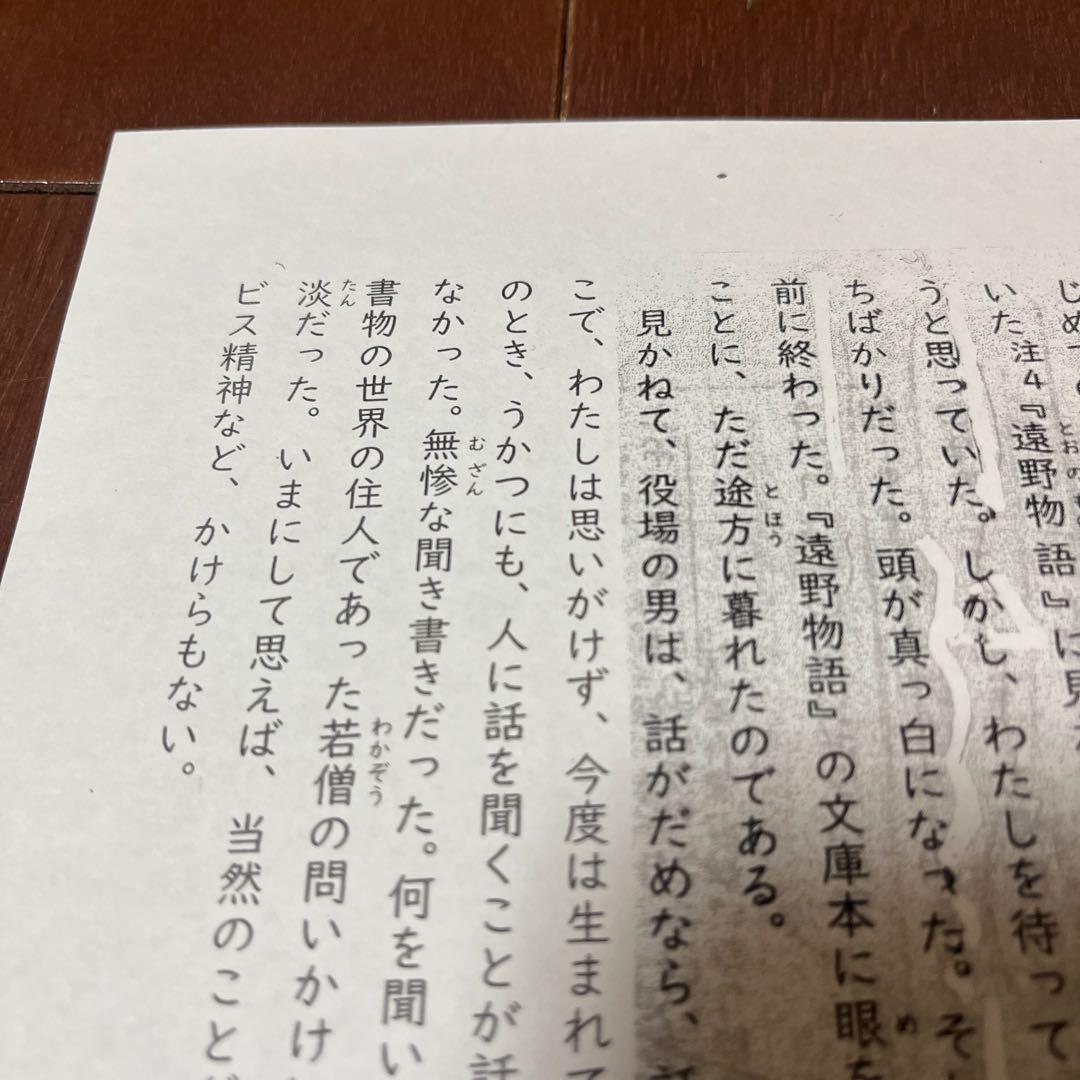 じめ
いた 注4『遠野物語』に見
うと思っていた。しかし、わたしを待って
ちばかりだった。頭が真っ白になった。そ
前に終わった。『遠野物語』の文庫本に眼を
ことに、ただ途方に暮れたのである。
見かねて、役場の男は、話がだめなら、
こで、わたしは思いがけず、今度は生まれて
のとき、うかつにも、人に話を聞くことが
なかった。無惨な聞き書きだった。何を聞い
書物の世界の住人であった若僧の問いかけ
淡だった。いまにして思えば、当然のこと
ビス精神など、かけらもない。